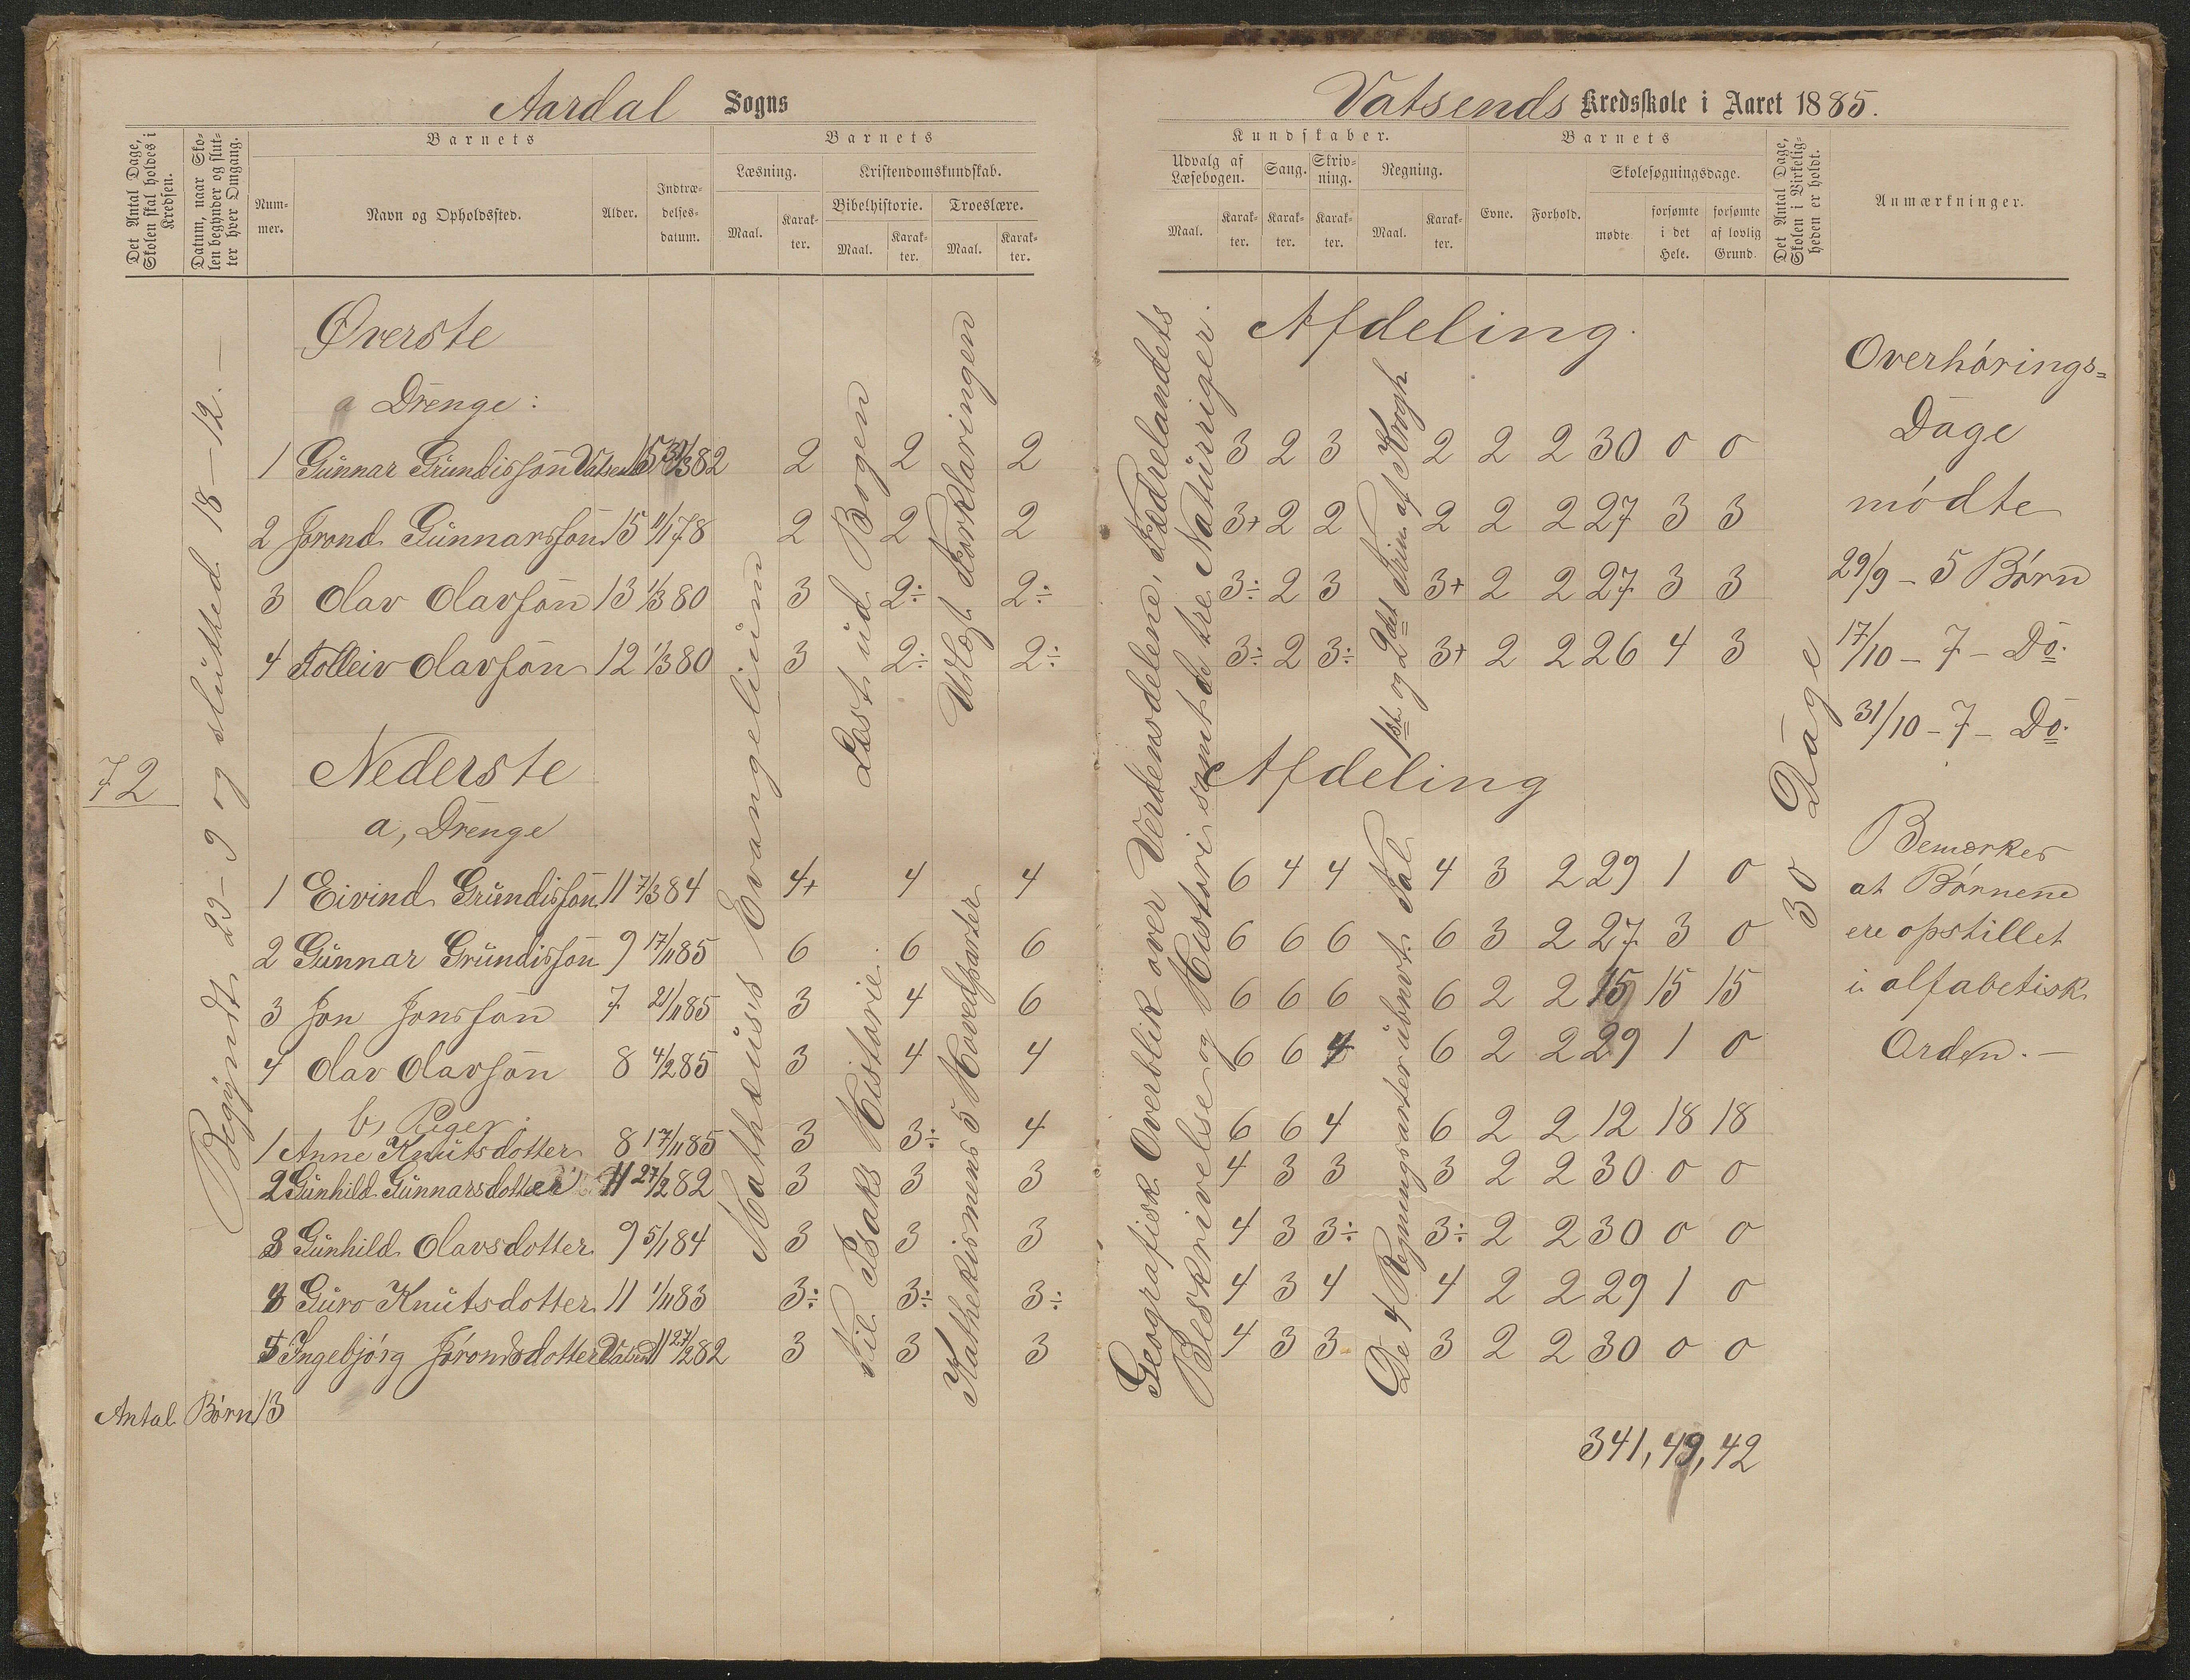 Aardal Sogns
Det Antal Dage, Skolen skal holdes i Kredsen.
Datum, naar Skolen begynder og slutter hver Omgang.
Barnets
Nummer.
Navn og Opholdssted.
Alder.
Indtrædelses-datum.
Barnets
Læsning.
Maal.
Karakter.
Kristendomskundskab.
Bibelhistorie.
Maal.
Karakter.
Troeslære.
Maal.
Karakter.
72
Begyndt 29-9 og slutted 18-12.-
Øverste
a Drenge:
1 Gunnar Grundissøn Vatsend 15 31/3 82 2 2 2
2 Jorond Gunnarssøn 15 11/1 78 2 2 2
3 Olav Olavssøn 13 1/3 80 3 2÷ 2÷
4 Tolleiv Olavssøn 12 1/3 80 3 2÷ 2÷
Nederste
a, Drenge
1 Eivind Grundissøn 11 7/3 84 4+ 4 4
2 Gunnar Grundissøn 9 17/11 85 6 6 6
3 Jon Jonssøn 7 21/11 85 3 4 6
4 Olav Olavssøn 8 4/2 85 3 4 4
b, Piger
1 Anne Knutsdotter 8 17/11 85 3 3÷ 4
2 Gunhild Gunnarsdotter 11 27/2 82 3 3 3
3 Gunhild Olavsdotter 9 5/1 84 3 3 3
4 Guro Knutsdotter 11 1/11 83 3÷ 3÷ 3÷
5 Ingebjørg Jørondsdotter Vatsend 11 27/2 82 3 3 3
Antal Børn 13
Mathæuss Evangelium
Læst ud Bogen
til Isaks Historie.
Udlagt Forklaringen
Kathekismens 5 Hovedparter
Vatsends Kredsskole i Aaret 1885.
Kundskaber.
Udvalg af Læsebogen.
Maal.
Karakter.
Sang.
Karakter.
Skrivning.
Karakter.
Regning.
Maal.
Karakter.
Barnets
Evne.
Forhold.
Skolesøgningsdage.
mødte
forsømte i det Hele.
forsømte af lovlig Grund.
Det Antal Dage, Skolen i Virkeligheden er holdt.
Anmærkninger.
Afdeling.
3 2 3 2 2 2 30 0 0
3+ 2 2 2 2 2 27 3 3
3÷ 2 3 3+ 2 2 27 3 3
3÷ 2 3÷ 3+ 2 2 26 4 3
Afdeling
6 4 4 4 3 2 29 1 0
6 6 6 6 3 2 27 3 0
6 6 6 6 2 2 15 15 15
6 6 4 6 2 2 29 1 0
6 6 4 6 2 2 12 18 18
4 3 3 3 2 2 30 0 0
4 3 3÷ 3÷ 2 2 30 0 0
4 3 4 4 2 2 29 1 0
4 3 3 3 2 2 30 0 0
341, 49, 42
Geografisk Overblik over Verdensdelene, Fædrelandets
Beskrivelse og Historie samt de tre Naturriger.
1ste og 2det Trin af Krogh
De 4 Regningsarter i ubnvt. Tal
30 Dage
Overhørings=
Dage
mødte
29/9 - 5 Børn
17/10 - 7 - Do.
31/10 - 7 - Do.
Bemærkes
at Børnene
ere opstillet
i alfabetisk
Orden.-